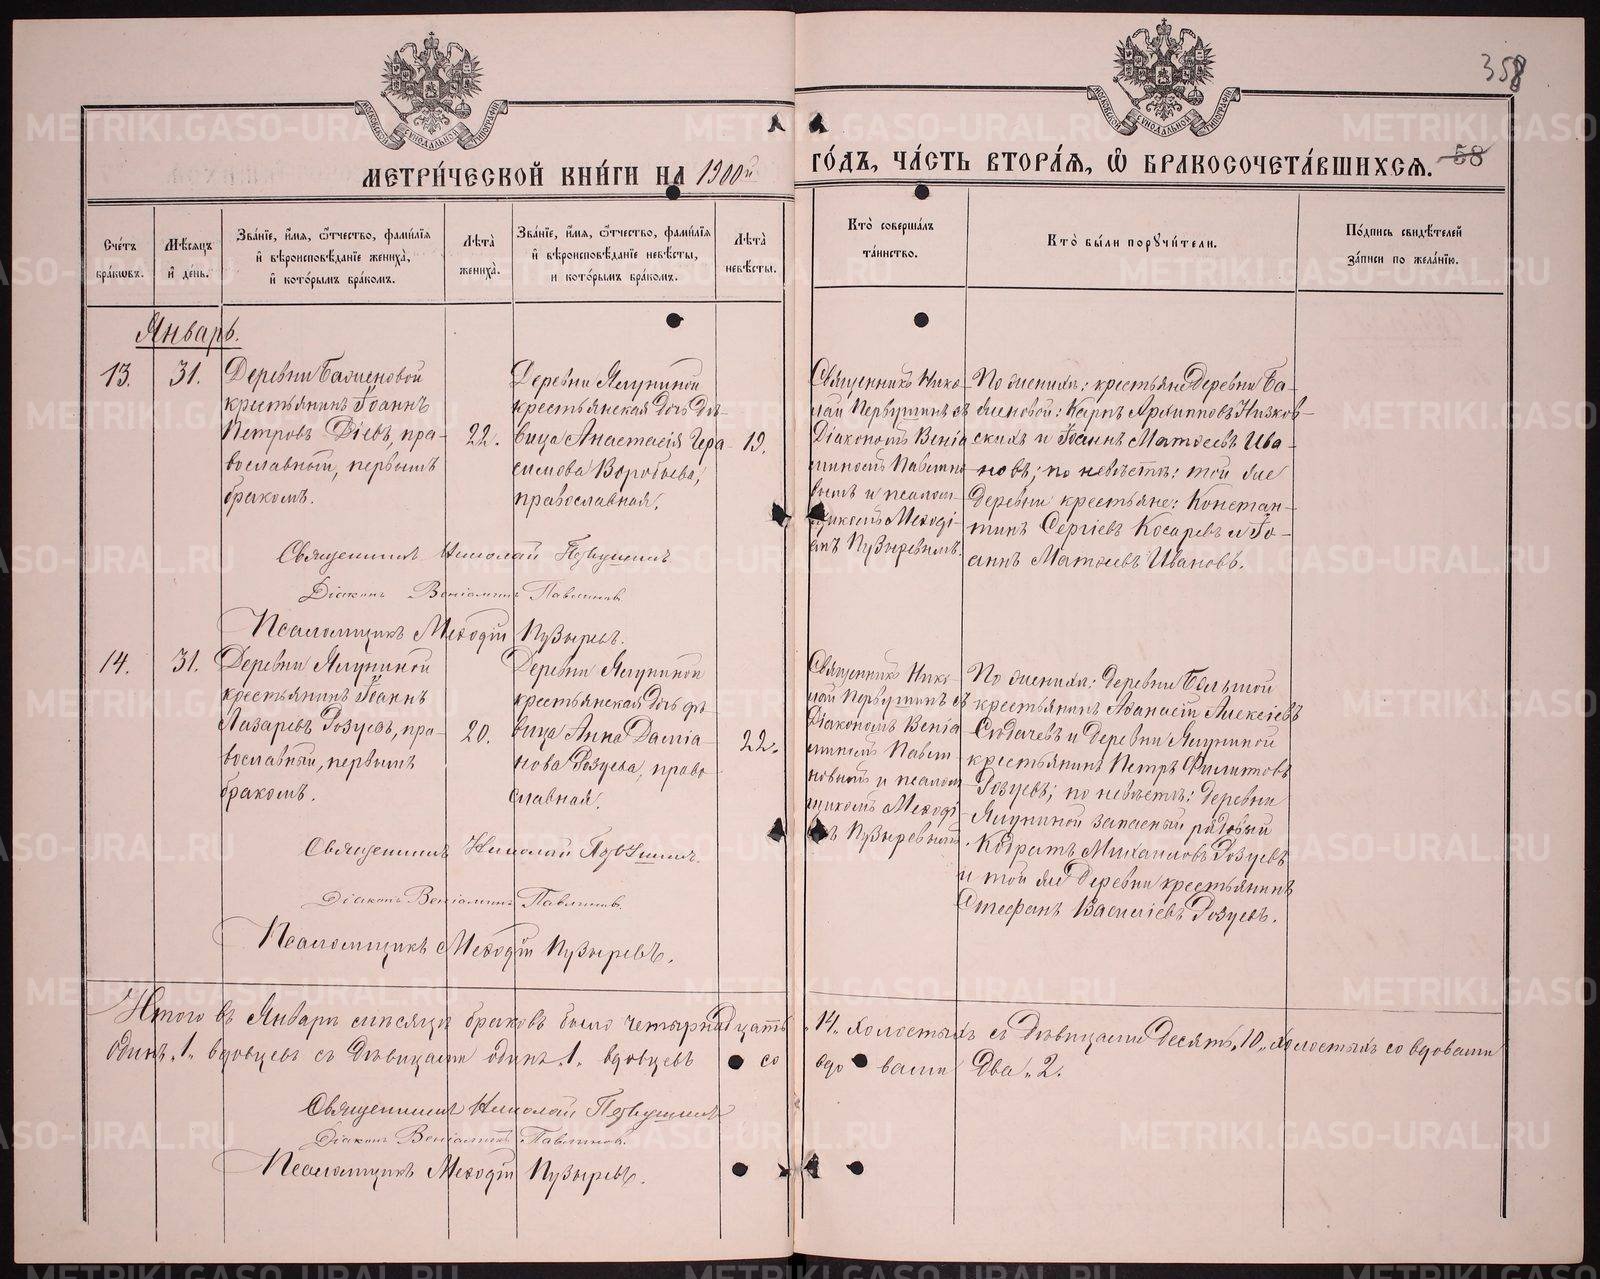 358
МОСКОВСКОЙ СѴНОДАЛЬНОЙ ТИПОГРАФІИ
МОСКОВСКОЙ СѴНОДАЛЬНОЙ ТИПОГРАФІИ
МЕТРИ́ЧЕСКОЙ КНИ́ГИ НА 1900й ГО́ДЪ, ЧА́СТЬ ВТОРА́Я, Ѡ҆ БРАКОСОЧЕТА́ВШИХСЯ. 58
Сче́тъ бра́кѡвъ.
Мѣ́сяцъ и҆ де́нь.
Зва́нїе, и҆́мя, ѻ҆́тчество, фами́лїя и҆ вѣроисповѣ́данїе жениха̀, и҆ кото́рымъ бра́комъ.
Лѣ́та жениха̀.
Зва́нїе, и҆́мя, ѻ҆́тчество, фами́лїя и҆ вѣроисповѣ́данїе невѣ́сты, и҆ кото́рымъ бра́комъ.
Лѣ́та невѣ́сты.
Кто̀ соверша́лъ та́инство.
Кто̀ бы́ли поручи́тели.
По́дпись свидѣ́телей за́писи по жела́нїю.
Январь.
13.
31.
Деревни
крестьянинъ Іоаннъ
Петровъ Діевъ, пра-
вославный, первымъ
бракомъ.
22.
Деревни Ялуниной
крестьянская дочь дѣ-
вица Анастасія Гера-
симова Воробьева,
православная.
19.
Священникъ Нико-
лай Первушинъ съ
Діакономъ Веніа
миномъ Павлино
вымъ и псалом-
щикомъ Меѳоді-
емъ Пузыревымъ.
По женихѣ: крестьяне Деревни
Карпъ Архипповъ Низков-
скихъ и Іоаннъ Матѳеевъ Ива-
новъ; по невѣстѣ: той же
Деревни крестьяне: Констан-
тинъ Сергіевъ Косаревъ и Іо-
аннъ Матѳеевъ Ивановъ.
Священникъ Николай Первушинъ
Діаконъ Веніаминъ Павлиновъ
Псаломщикъ Меѳодій Пузыревъ.
14.
31.
Деревни Ялуниной
крестьянинъ Іоаннъ
Лазаревъ Розуевъ, пра-
вославный, первымъ
бракомъ.
20.
Деревни Ялуниной
крестьянская дочь дѣ-
вица Анна Даміа-
нова Розуева, право-
славная.
22.
Священникъ Нико-
лай Первушинъ съ
Діакономъ Веніа
миномъ Павли
новымъ и псалом
щикомъ Меѳоді-
емъ Пузыревымъ.
По женихѣ: деревни Большой
крестьянинъ Аѳанасій Алексіевъ
и деревни Ялуниной
крестьянинъ Петръ Филиповъ
Розуевъ; по невѣстѣ: деревни
Ялуниной запасный рядовый
Кодратъ Михаиловъ Розуевъ
и той же деревни крестьянинъ
Стефанъ Василіевъ Розуевъ.
Священникъ Николай Первушинъ.
Діаконъ Веніаминъ Павлиновъ.
Псаломщикъ Меѳодій Пузыревъ.
Итого въ Январѣ мѣсяцѣ браковъ было четырнадцать „14„ холостыхъ съ дѣвицами Десять „10„ холостыхъ со вдовами
одинъ „1„ вдовцевъ съ дѣвицами одинъ „1„ вдовцевъ со вдовами Два „2.
Священникъ Николай Первушинъ
Діаконъ Веніаминъ Павлиновъ.
Псаломщикъ Меѳодій Пузыревъ.
METRIKI.GASO-URAL.RU